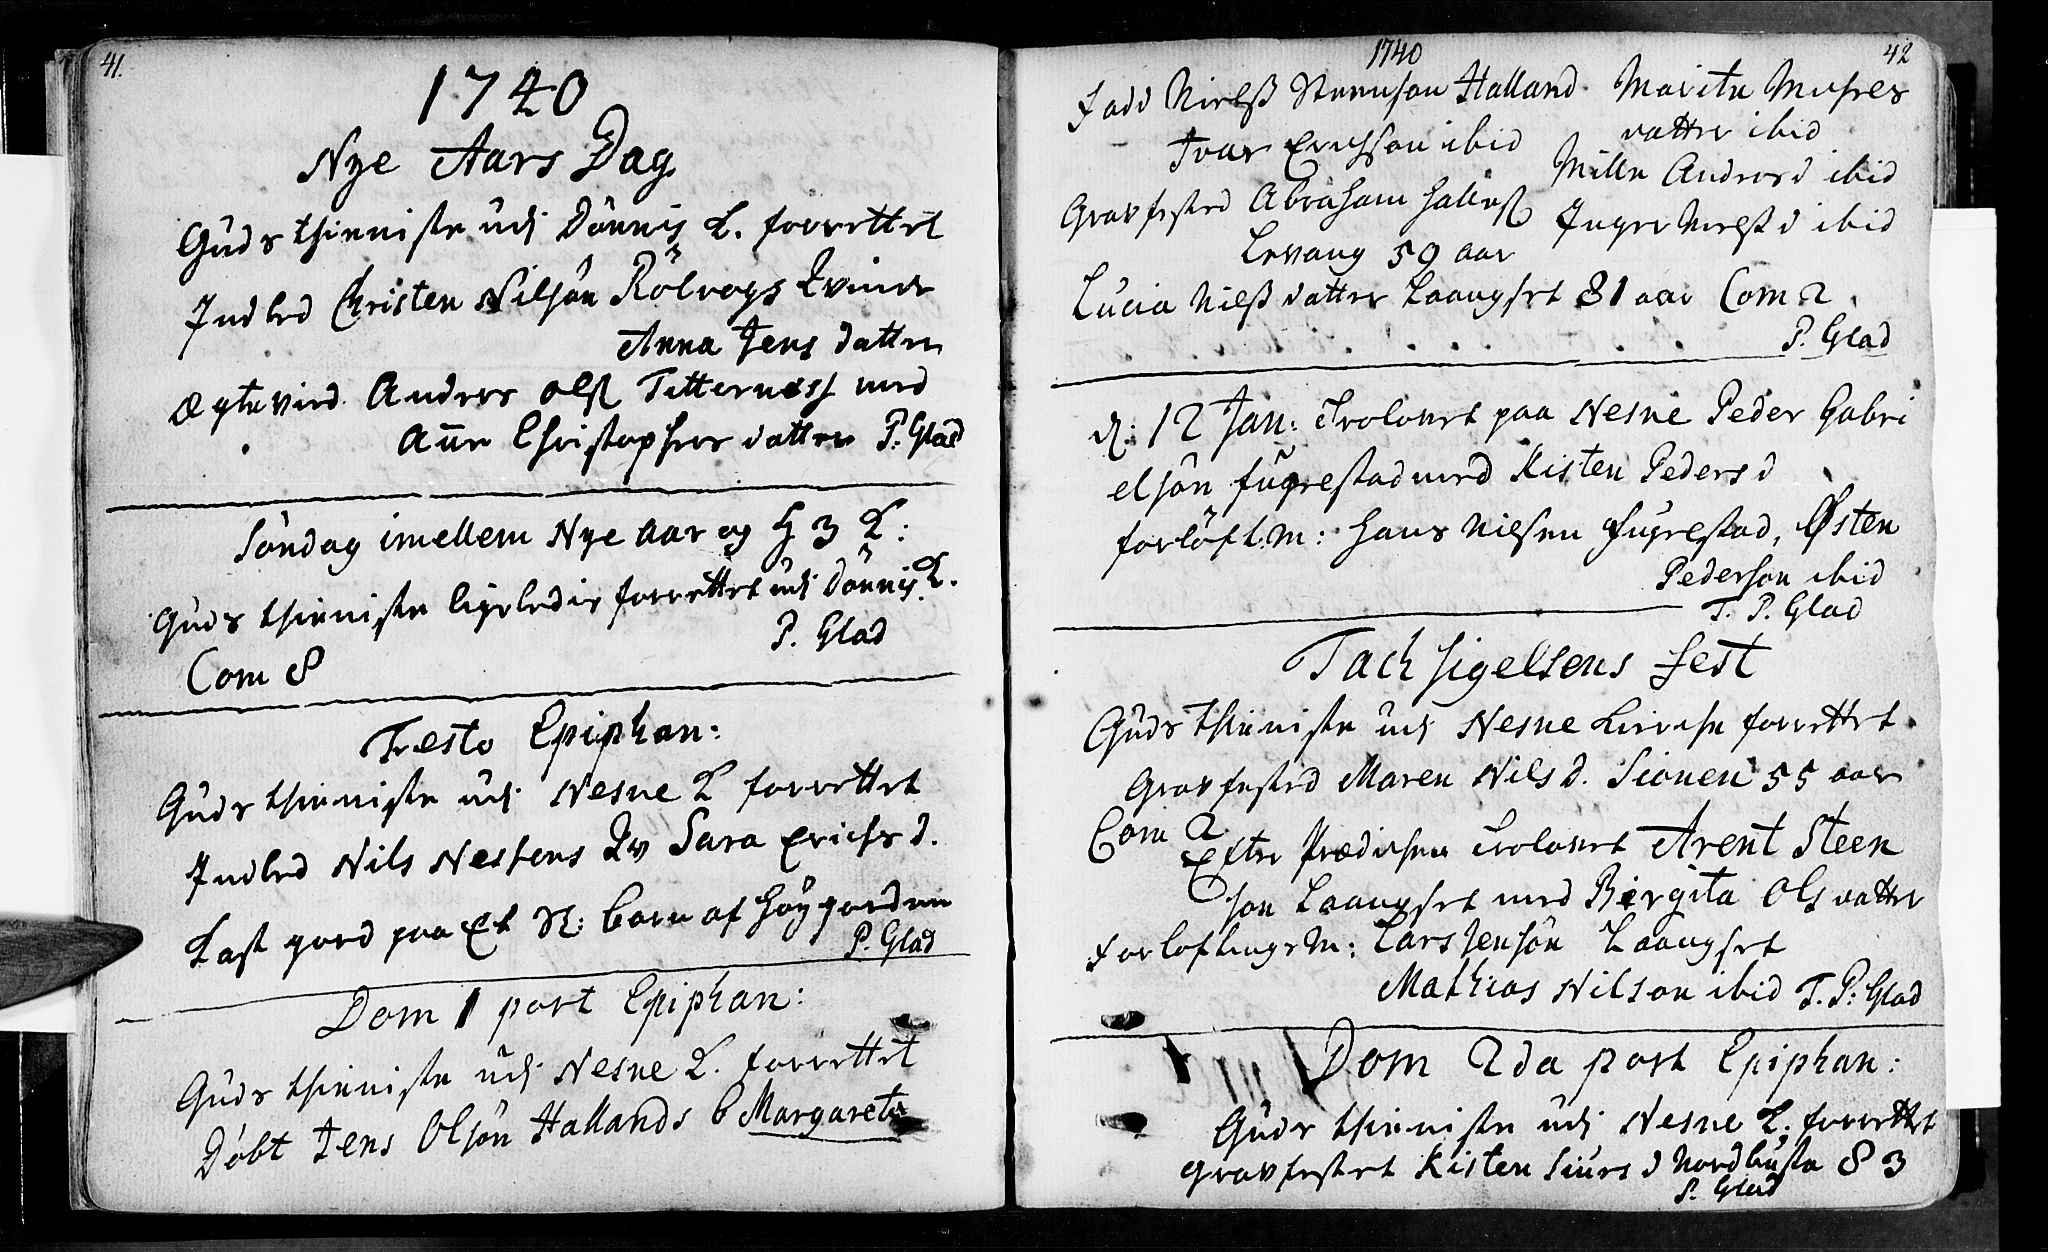 41.
1740
Nye Aars Dag
Guds thienniste udj Dönnis K. forrettet
Indled Christen Nilsön Rölvogs Qvinde
Anna Jens datter
Ægtevied Anders Olss Titterness med
Anne Christopher datter P. Glad
Söndag imellem Nye aar og H 3 K:
Guds thienniste ligeledis forrettet udj Dönnis K.
P. Glad
Com 8
Festo Epiphan:
Guds thienniste udj Nesne K forrettet
Indled Nils Nessens Qv Sara Erichs d.
Kast jord paa Et St: barn af Höygorden
P. Glad
Dom 1 post Epiphan:
Guds thienniste udj Nesne K. forrettet
Döbt Jens Olsön Hallands b Margareta
1740
42
Fadd Nielss Steensson Halland
Ivar Erichsson ibid
Marite Mo
datter ibid
Mille Anders d ibid
Inger Nielss d ibid
Gravfested Abraham
Levang 59 aar
Lucia Nielss datter Laangset 81 aar Com 2
P. Glad
d: 12 Jan: Trolovet paa Nesne Peder Gabri
elsön Fugrestad med Kisten Peders d
forlöft. m: Hans Nilsen Fugrestad, Østen
Pederson ibid
T. P. Glad
Tachsigelsens Fest
Guds thienniste udj Nesne Kirche forrettet
Gravfested Maren Nils d. Sionen 55 aar
Com 2
Efter Prædichen trolovet Arent Steen
son Laangset med Birgita Ols datter
Forloftnings M: Lars Jensön Laangset
Mathias Nilson ibid T. P: Glad
Dom 2da post Epiphan:
Guds thienniste udj Nesne K. forrettet
gravfestet Kisten Siurs d Nordbusta 83
P. Glad